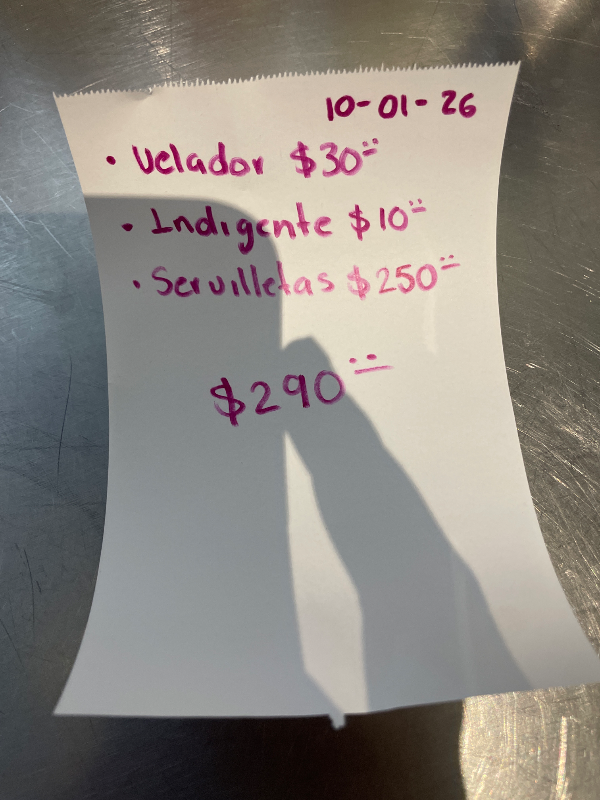 10-01-26
• Velador $30=
• Indigente $10=
• Servilletas $250=
$290=